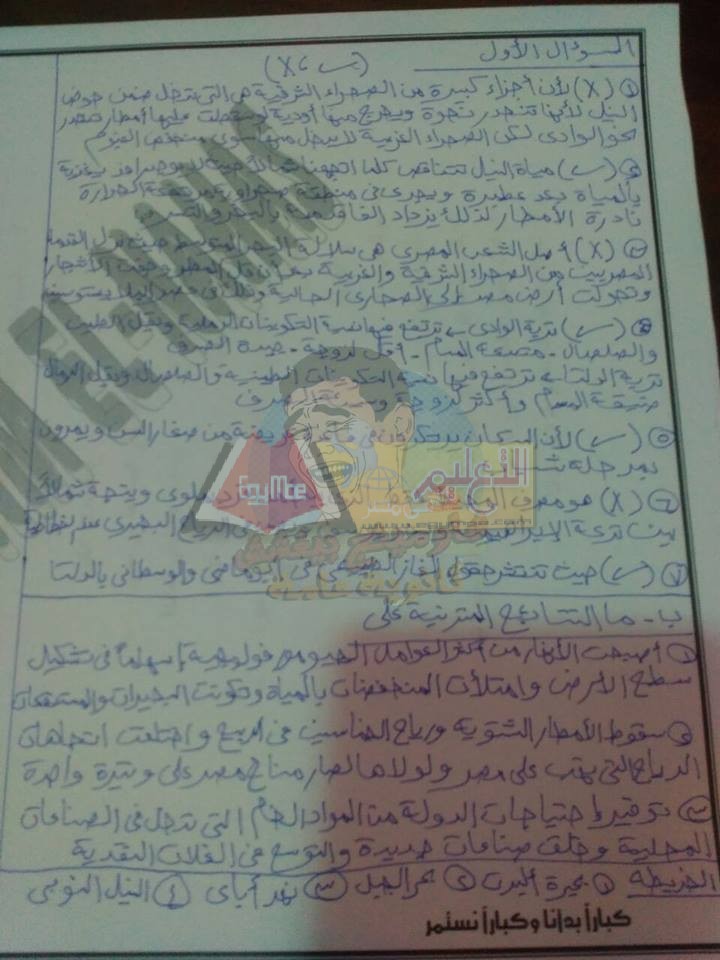 السؤال الأول
(√ ، X)
① (X) لأن أجزاء كبيرة من الصحراء الشرقية هي التي تدخل ضمن حوض
النيل لأنها تنحدر نحوه ويخرج منها أودية لو سقطت عليها أمطار تنحدر
نحو الوادي لكن الصحراء الغربية لا يدخل منها سوى منخفض الفيوم
② (√) مياه النيل تتناقص كلما اتجهنا شمالاً حيث لا يوجد روافد تغذية
بالمياه بعد عطبرة ويجري في منطقة صحراوية مرتفعة الحرارة
نادرة الأمطار لذلك يزداد الفاقد منه بالبخر والتسرب
③ (X) أصل الشعب المصري هي سلالة البحر المتوسط حيث نزل القدماء
المصريين من الصحراء الشرقية والغربية بعد أن قل المطر وجفت الأشجار
وتحولت أرض مصر إلى الصحاري الحالية وذلك في عصر البلايستوسين
④ (√) تربة الوادي ترتفع فيها نسبة التكوينات الرملية وتقل الطين
والصلصال - متسعة المسام - أقل لزوجة - جيدة الصرف
تربة الدلتا ترتفع فيها نسبة التكوينات الطينية والصلصال وتقل الرمال
ضيقة المسام وأكثر لزوجة الصرف
⑤ (√) لأن السكان يدخلون في قاعدة عريضة من صغار السن ويمرون
بمرحلة شباب
⑥ (X) هو مصرف المحيط ويتجه شمالاً
بين ترعة الإبراهيمية الرياح البحيري
⑦ (√) حيث تنتشر حقول الغاز الطبيعي في أبو ماضي والوسطاني بالدلتا
ب- ما النتائج المترتبة على
① أصبحت الأنهار من أكثر العوامل الجيومورفولوجية إسهاماً في تشكيل
سطح الأرض وامتلأت المنخفضات بالمياه وتكونت البحيرات والمستنقعات
② سقوط الأمطار الشتوية ورياح الخماسين في الربيع واختلفت اتجاهات
الرياح التي تهب على مصر ولولاها لصار مناخ مصر على وتيرة واحدة
③ توفير احتياجات الدولة من المواد الخام التي تدخل في الصناعات
المحلية وخلق صناعات جديدة والتوسع في الغلات النقدية
الخريطة ① بحيرة ألبرت ② بحر الجبل ③ نهر أباي ④ النيل النوبي
كباراً بدأنا وكباراً نستمر
التعليم